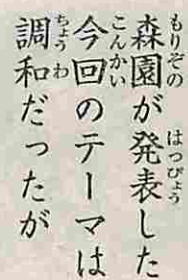 森園が発表した
今回のテーマは
調和だったが